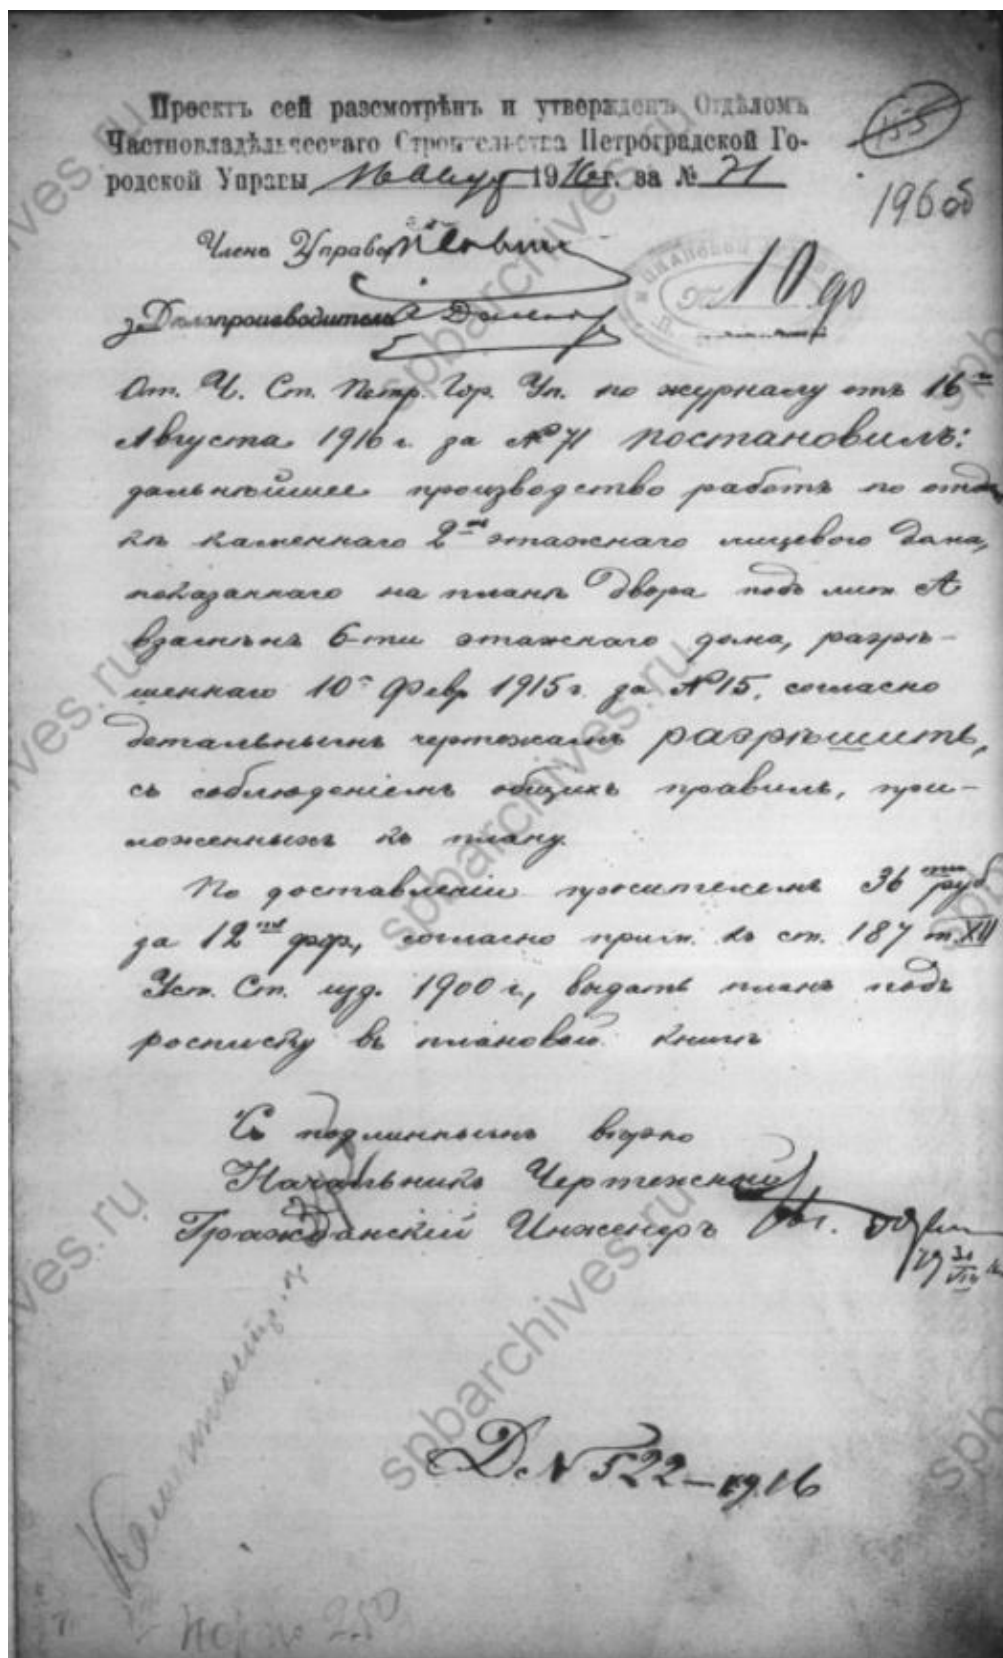 Проектъ сей разсмотрѣнъ и утвержденъ Отдѣломъ
Частновладѣльческаго Строительства Петроградской Го-
родской Управы 16 Авгус 1916 г. за № 71
155
196 об
Членъ Управы
Дѣлопроизводитель
10
От. Ч. Ст. Петр. Гор. Уп. по журналу отъ 16го
Августа 1916 г. за № 71 постановилъ:
дальнѣйшее производство работъ по
каменнаго 2хъ этажнаго лицевого дома,
показаннаго на планѣ двора подъ лит. А
взамѣнъ 6-ти этажнаго дома, разрѣ-
шеннаго 10го Февр 1915 г. за № 15, согласно
детальнымъ чертежамъ разрѣшить,
съ соблюденіемъ общихъ правилъ, при-
ложенныхъ къ плану.
По доставленіи просителемъ 36ти руб
за 12ть согласно прим. къ ст. 187 т. XII
Уст. Ст. изд. 1900 г., выдать планъ подъ
росписку въ плановой книгѣ
Съ подлиннымъ вѣрно
Начальникъ Чертежной
Гражданскій Инженеръ
Д. № 522 – 1916
250
spbarchives.ru